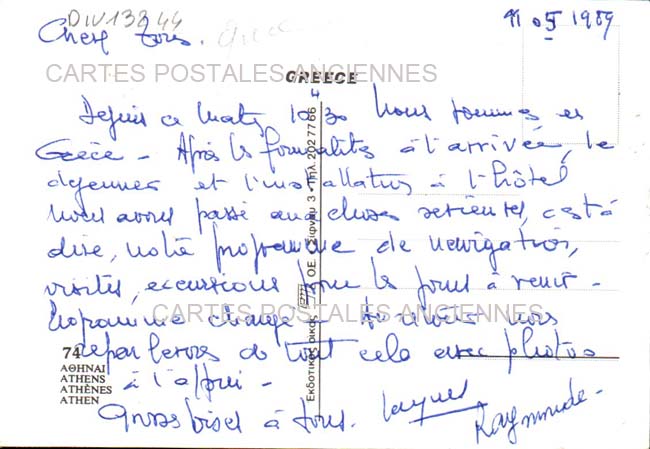 DIV13844
11 05 1989
Chers tous.
Grèce
CARTES POSTALES ANCIENNES
GREECE
Depuis ce matin 10h30 nous sommes en
Grèce - Après les formalités à l'arrivée, le
déjeuner et l'installation à l'hôtel
nous avons passé aux choses sérieuses, c'est à
dire, notre programme de navigation,
visites, excursions pour les jours à venir -
CARTES POSTALES ANCIENNES
Programme chargé -
reparlerons de tout cela avec photos
à l'appui -
Grosses bises à tous. Jacques
Raymonde -
74
ΑΘΗΝΑΙ
ATHENS
ATHÈNES
ATHEN
Εκδοτικός οίκος ΟΕ Σίφνου 3 - ΤΗΛ 2027766